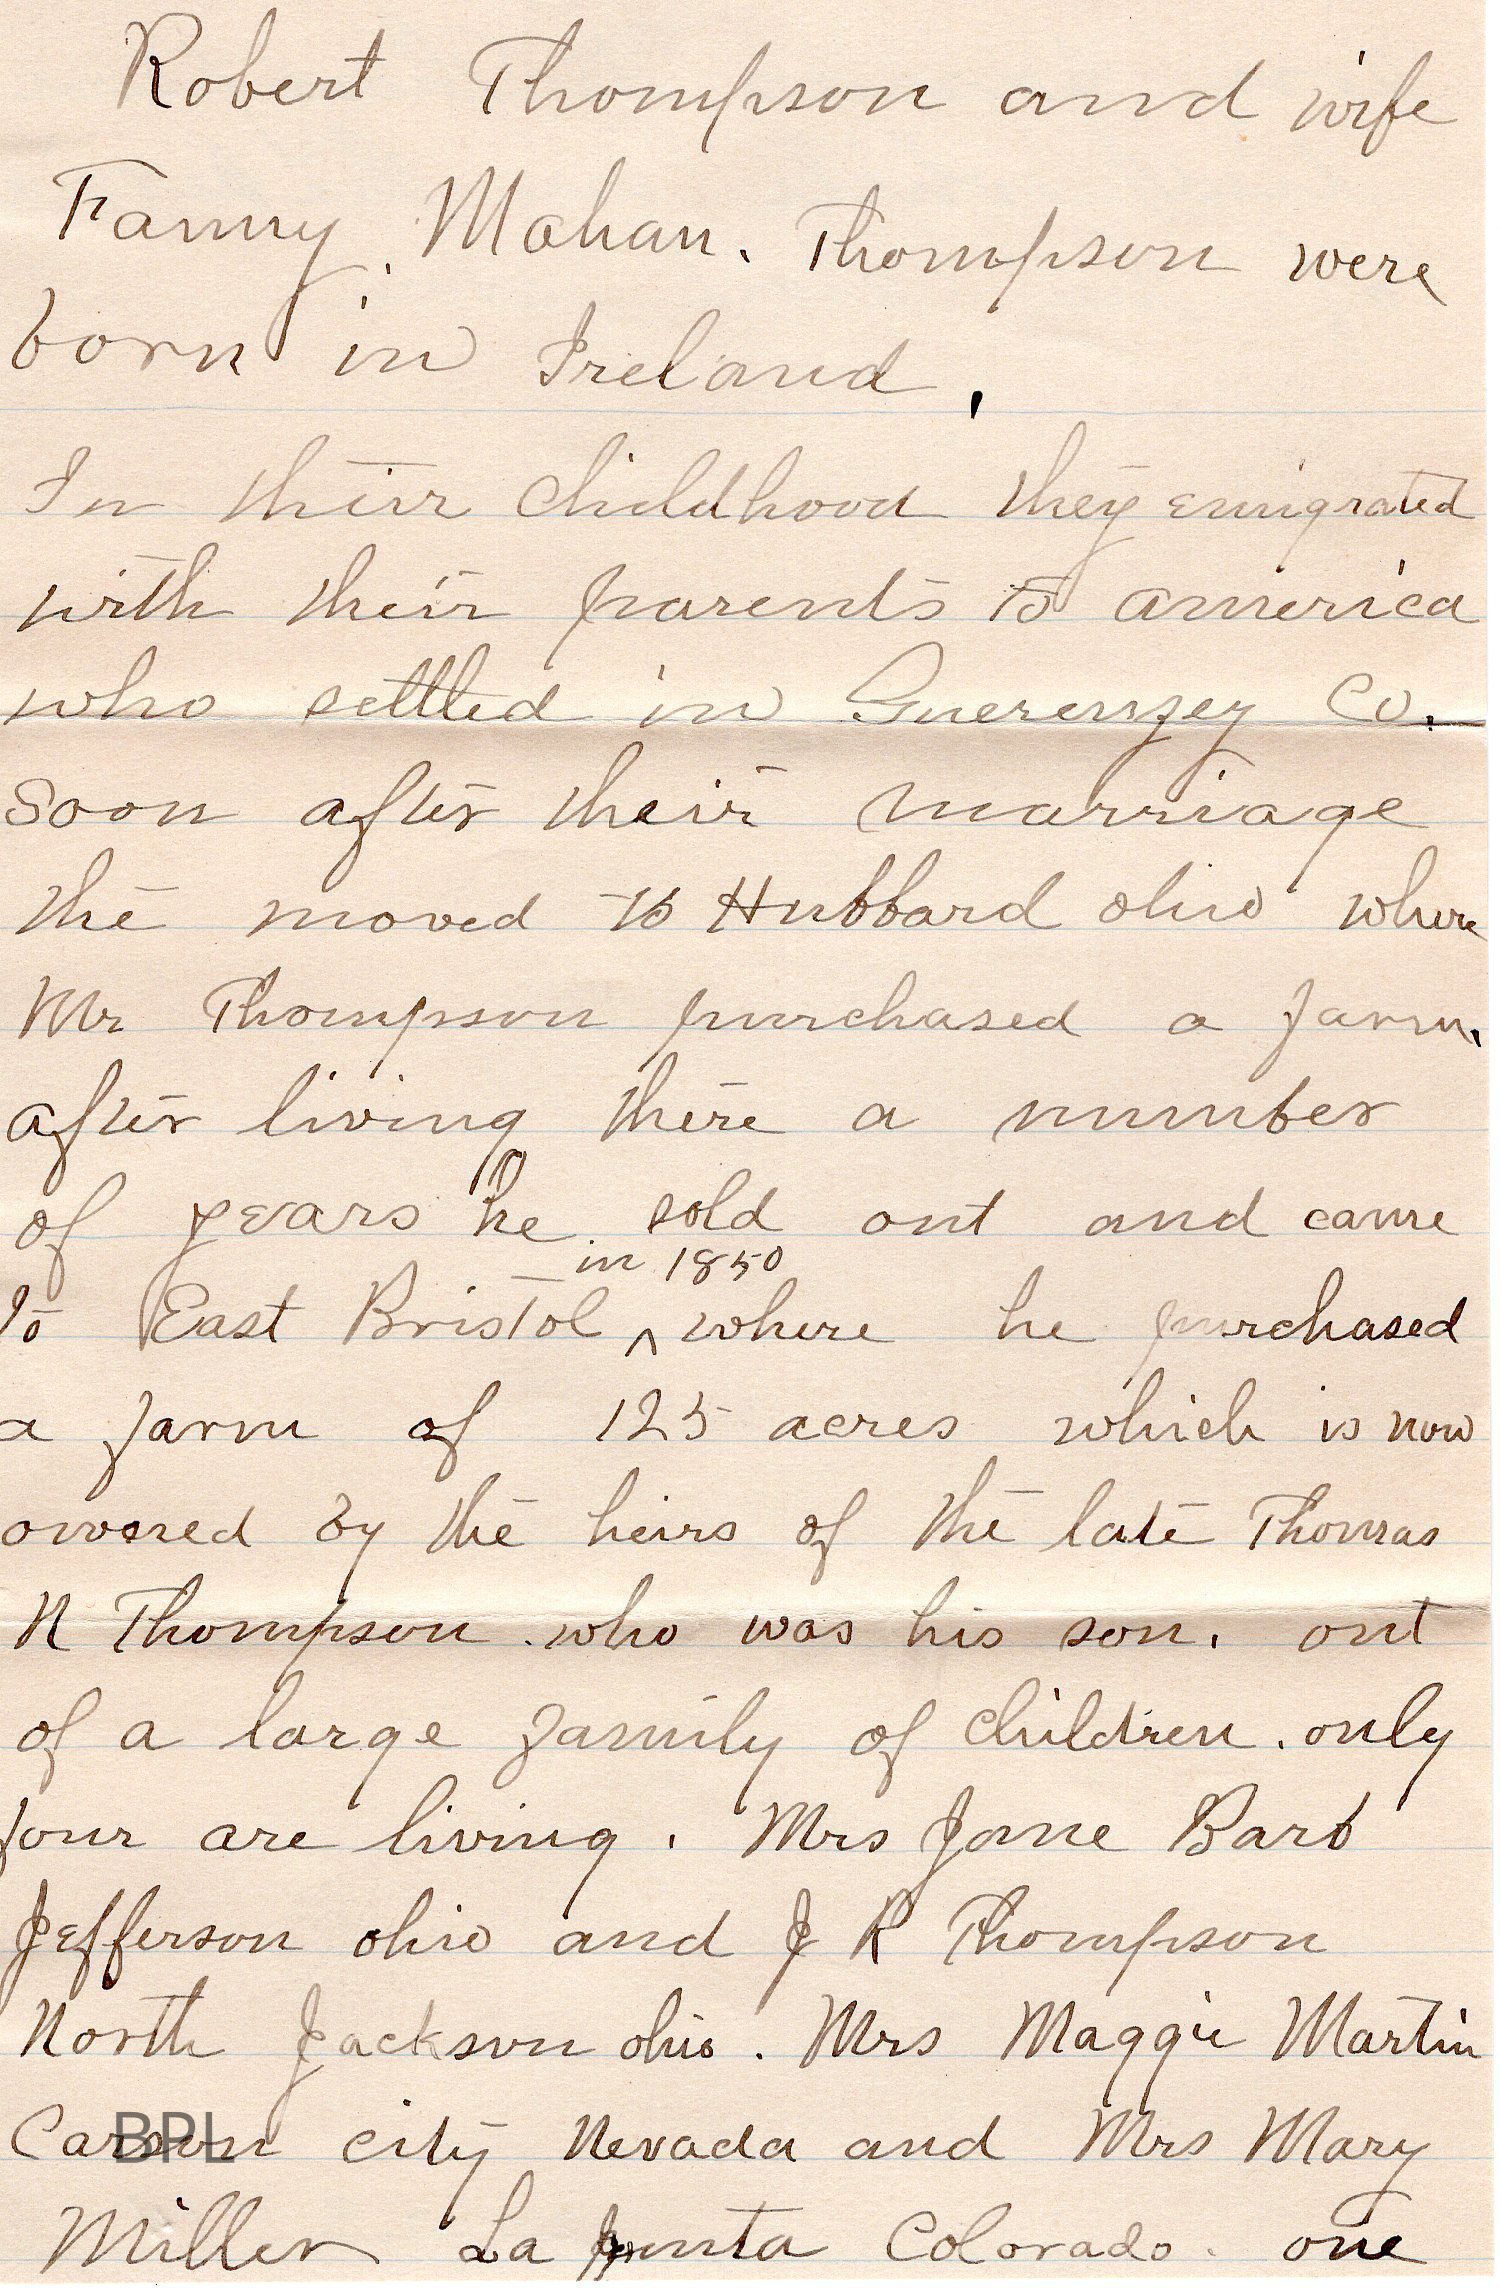 Robert Thompson and wife
Fanny Mahan. Thompson were
born in Ireland.
In their childhood they emigrated
with their parents to america
who settled in Guerensey Co.
Soon after their marriage
the moved to Hubbard ohio where
Mr Thompson purchased a farm.
after living there a number
of years he sold out and came
in 1850
to East Bristol ^ where he purchased
a farm of 125 acres which is now
owned by the heirs of the late Thomas
N Thompson. who was his son. out
of a large family of children. only
four are living. Mrs Jane Barb
Jefferson ohio and J R Thompson
North Jackson ohio. Mrs Maggie Martin
Carson city Nevada and Mrs Mary
BPL
Miller La Junta Colorado. one